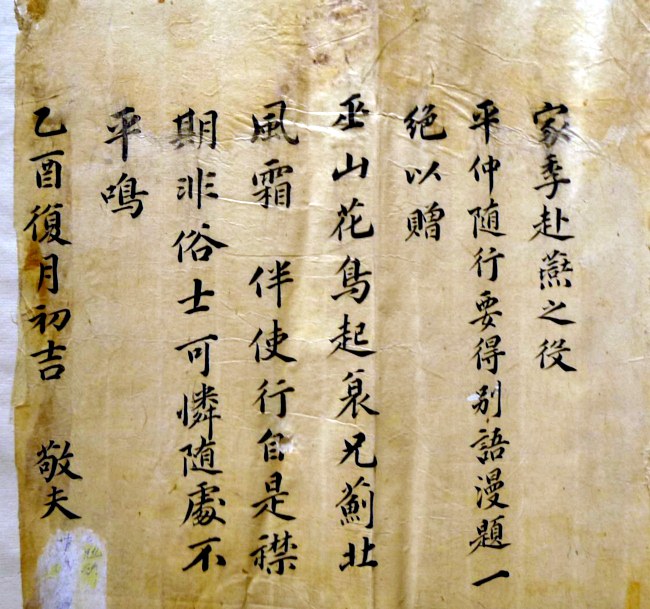 家季赴燕之役
平仲随行要得别語漫題一
絶以贈
巫山花鳥起哀兄薊北
風霜伴使行自是襟
期非俗士可憐随處不
平鳴
乙酉復月初吉 敬夫